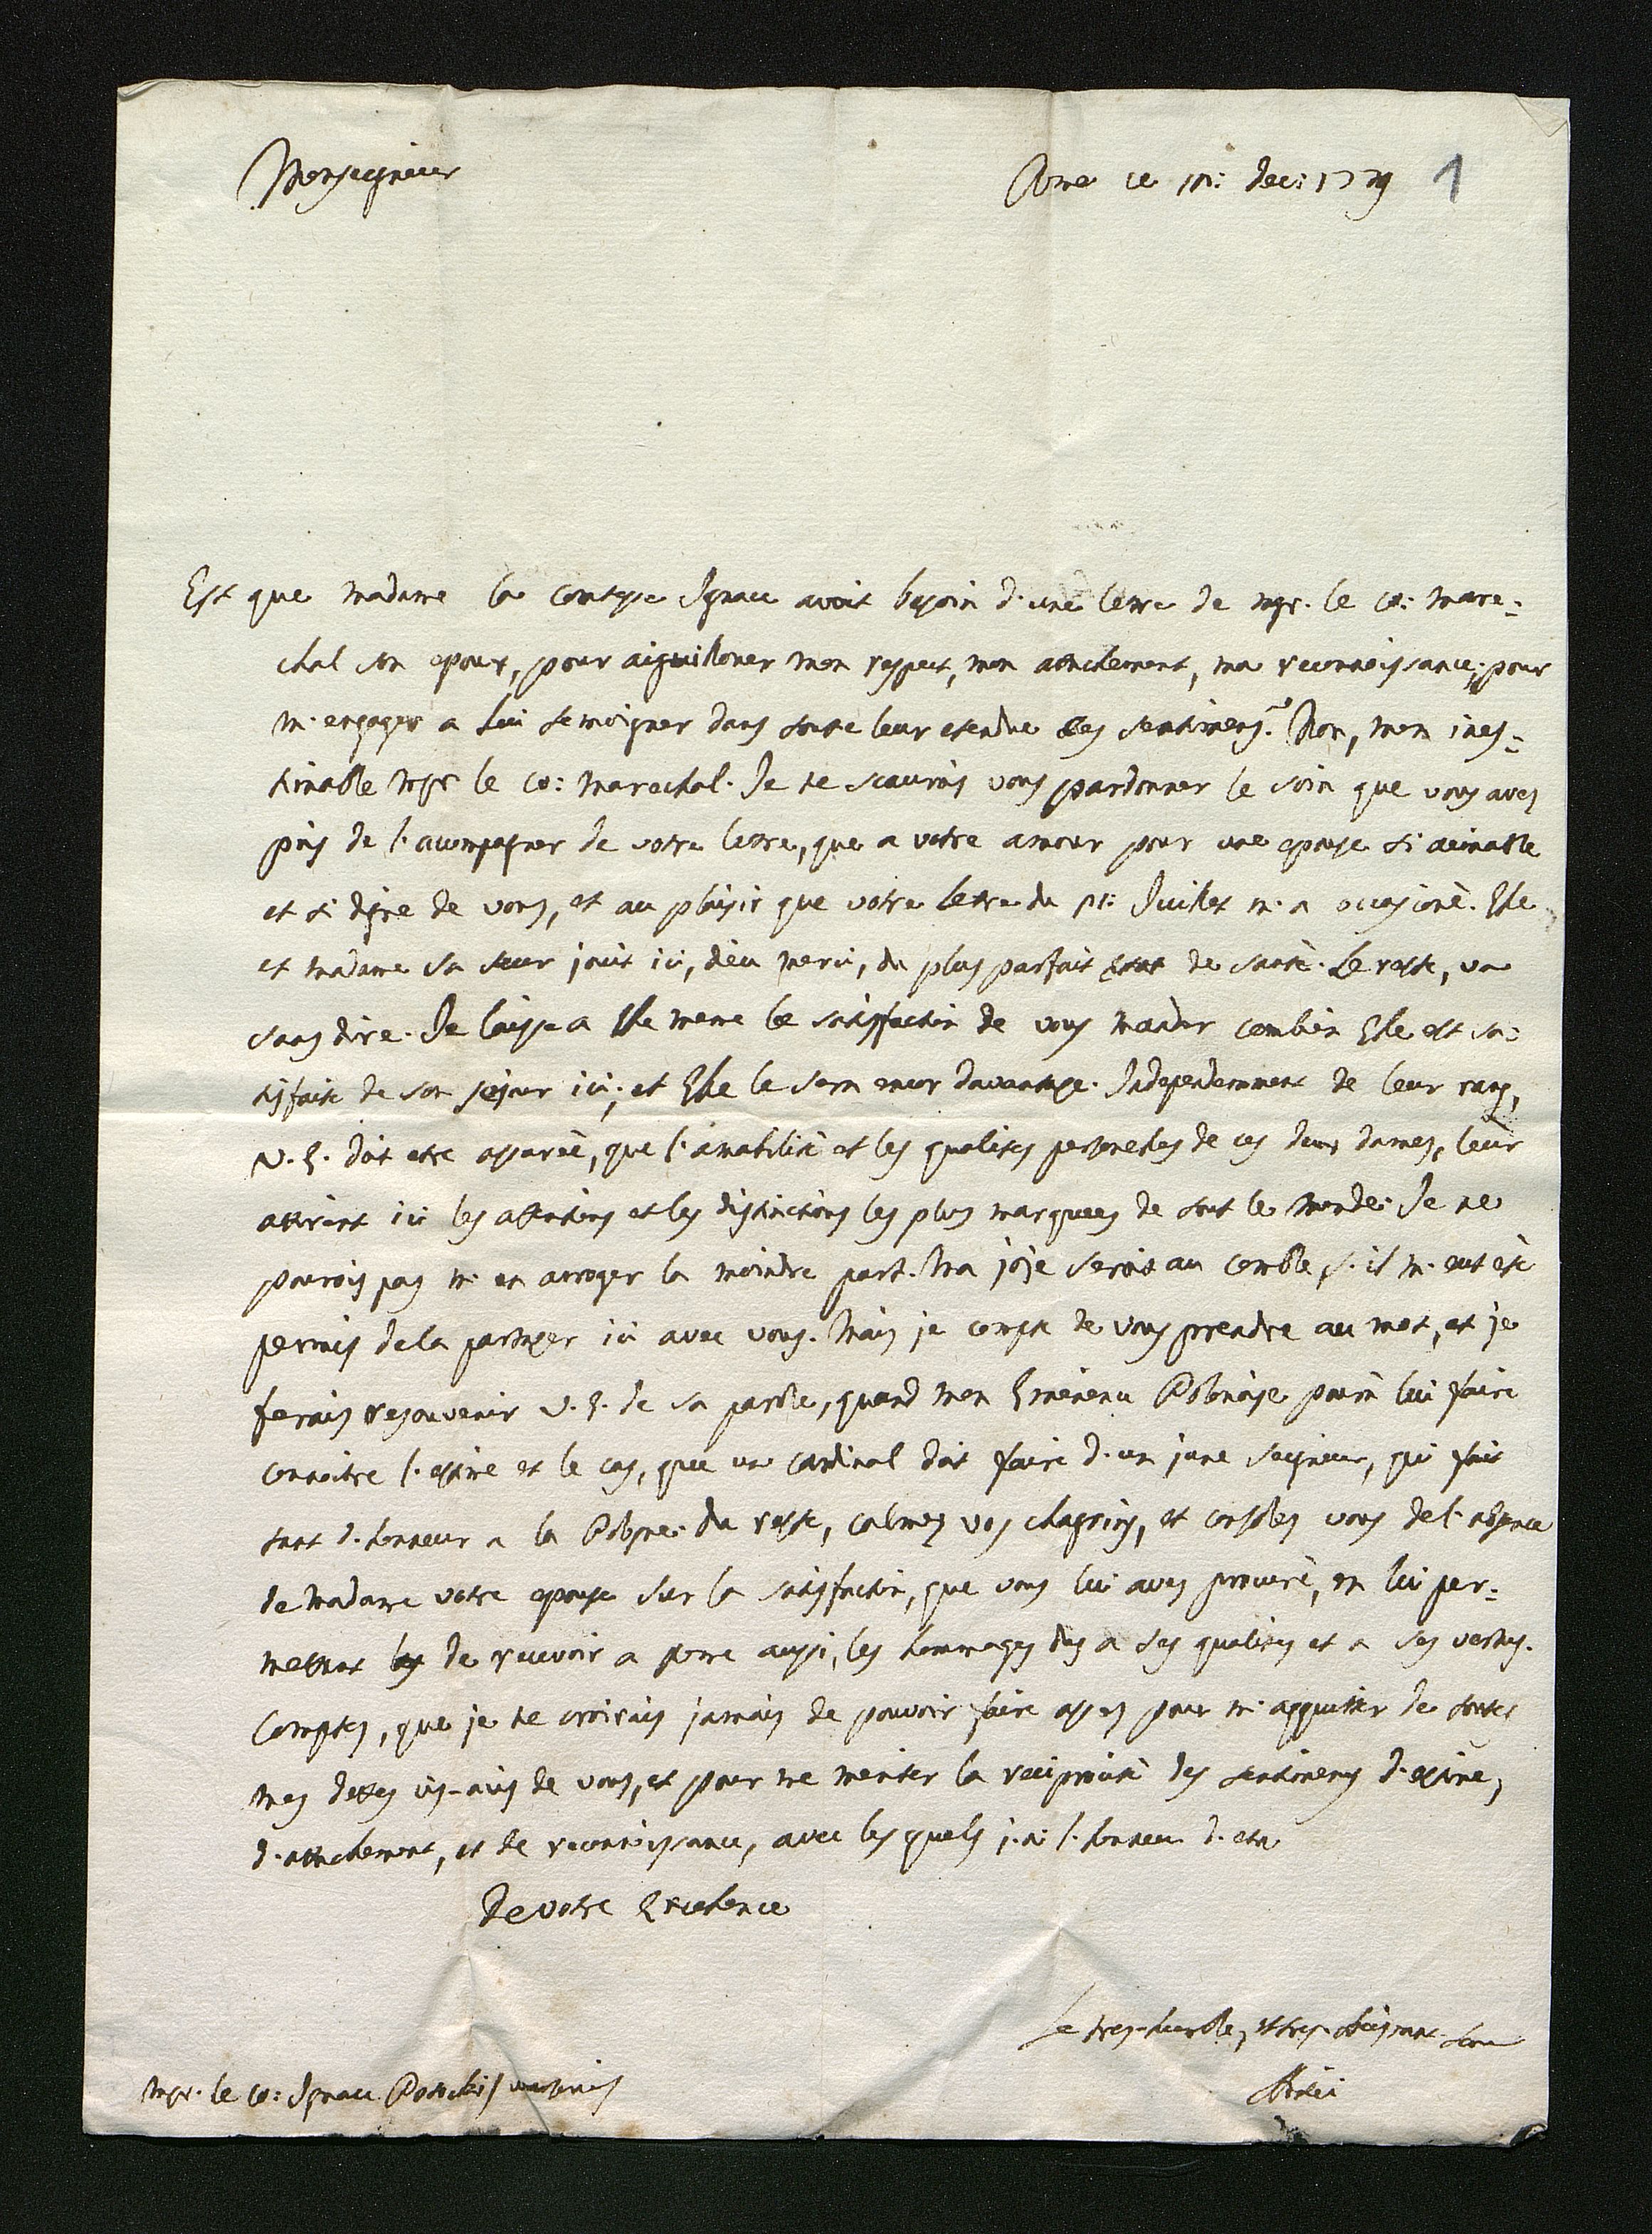 Monseigneur
Rome ce 10: dec: 1779 1
Est que madame la contesse Ignace avoit besoin d'une lettre de mgr. le co: mare=
chal son epoux, pour aiguilloner mon respect, mon attachement, ma reconnoissance; pour
m'engager a Lui temoigner dans toute leur etendue ces sentimens? Non, mon ines=
timable Mgr le co: marechal. Je ne scaurois vous pardonner le soin que vous aves
pris de l'acompagner de votre lettre, que a votre amour pour une epouse si aimable
et si digne de vous, et au plaisir que votre lettre du Juillet m'a occasioné. Elle
et madame sa sœur jouit ici, dieu merci, du plus parfait etat de santé. Le reste, va
sans dire. Je laisse a Elle meme la satisfaction de vous mander combien Elle est sa=
tisfaite de son sejour ici; et Elle le sera encor davantage. Independemment de leur rang,
V. E. doit etre assurée, que l'amabilité et les qualites personelles de ces deux dames, leur
attirent ici les attentions et les distinctions les plus marquees de tout le monde. Je ne
pourois pas m'en arroger la moindre part. Ma joje seroit au comble, s'il m'eut eté
permis de la partager ici avec vous. Mais je compte de vous prendre au mot, et je
ferais resouvenir V. E. de sa parole, quand mon Eminence Polonoise poura lui faire
connoitre l'estime et le cas, que un cardinal doit faire d'un june seigneur, qui fait
tant d'honneur a la Pologne. Du reste, calmez vos chagrins, et consolez vous de l'absence
de madame votre epouse sur la satisfaction, que vous lui aves procuré, en lui per=
mettant de recevoir a Rome aussi, les hommages dus a ses qualites et a ses vertus.
Comptes, que je ne croirais jamais de pouvoir faire asses pour m'acquitter de toutes
mes dettes vis-avis de vous, et pour me meriter la reciprocité des sentimens d'estime,
d'attachement, et de reconnoissance, avec les quels j'ai l'honneur d'etre
De votre Excelence
Le tres-humble, et tres-obeissant serv
Mgr. le co: Ignace Potocki / varsovie